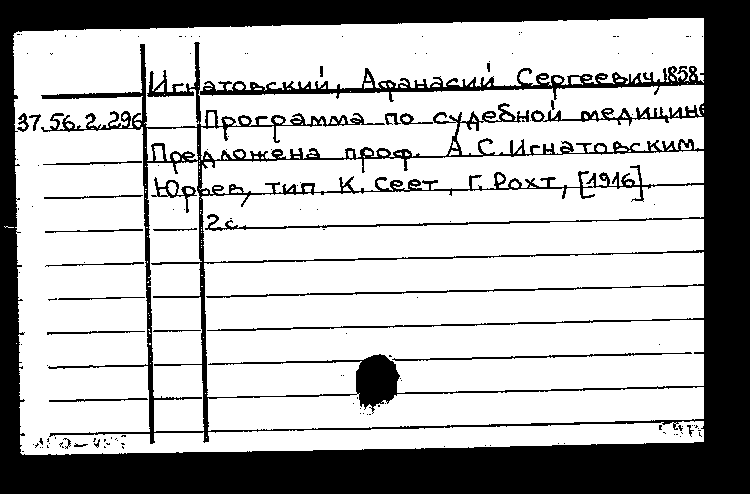 Игнатовский, Афанасий Сергеевич, 1858-
37.56.2.296 Программа по судебной медицине
Предложена проф. А.С.Игнатовским
Юрьев, тип. К. Сеет, Г. Рохт, [1916].
2 с.